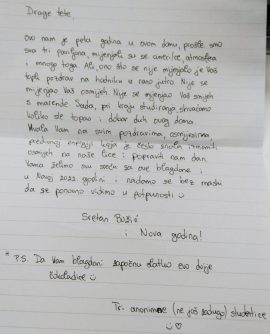 Drage tete,
Ovo nam je peta godina u ovom domu, prošle smo
sva tri paviljona, mijenjali su se cimerice, atmosfera
i mnogo toga. Ali, ono što se nije mijenjalo je Vaš
topli pozdrav na hodniku u rano jutro. Nije se
mijenjao Vaš osmijeh Nije se mijenjao Vaš smijeh
s marende. Sada, pri kraju studiranja shvaćamo
koliko ste topao i dobar duh ovog doma.
Hvala Vam na svim pozdravima, osmjesima,
predivnoj energiji koja je često znala izmamiti
osmijeh na naše lice i popraviti nam dan.
Vama želimo svu sreću za ove blagdane i
u Novoj 2022. godini i nadamo se bez maski
da se ponovno vidimo u potpunosti ☺
Sretan Božić
i Nova godina!
* P.S. Da Vam blagdani započnu slatko evo dvije
čokoladice ☺
Tri anonimne (ne još zadugo) studentice
☺ ♡